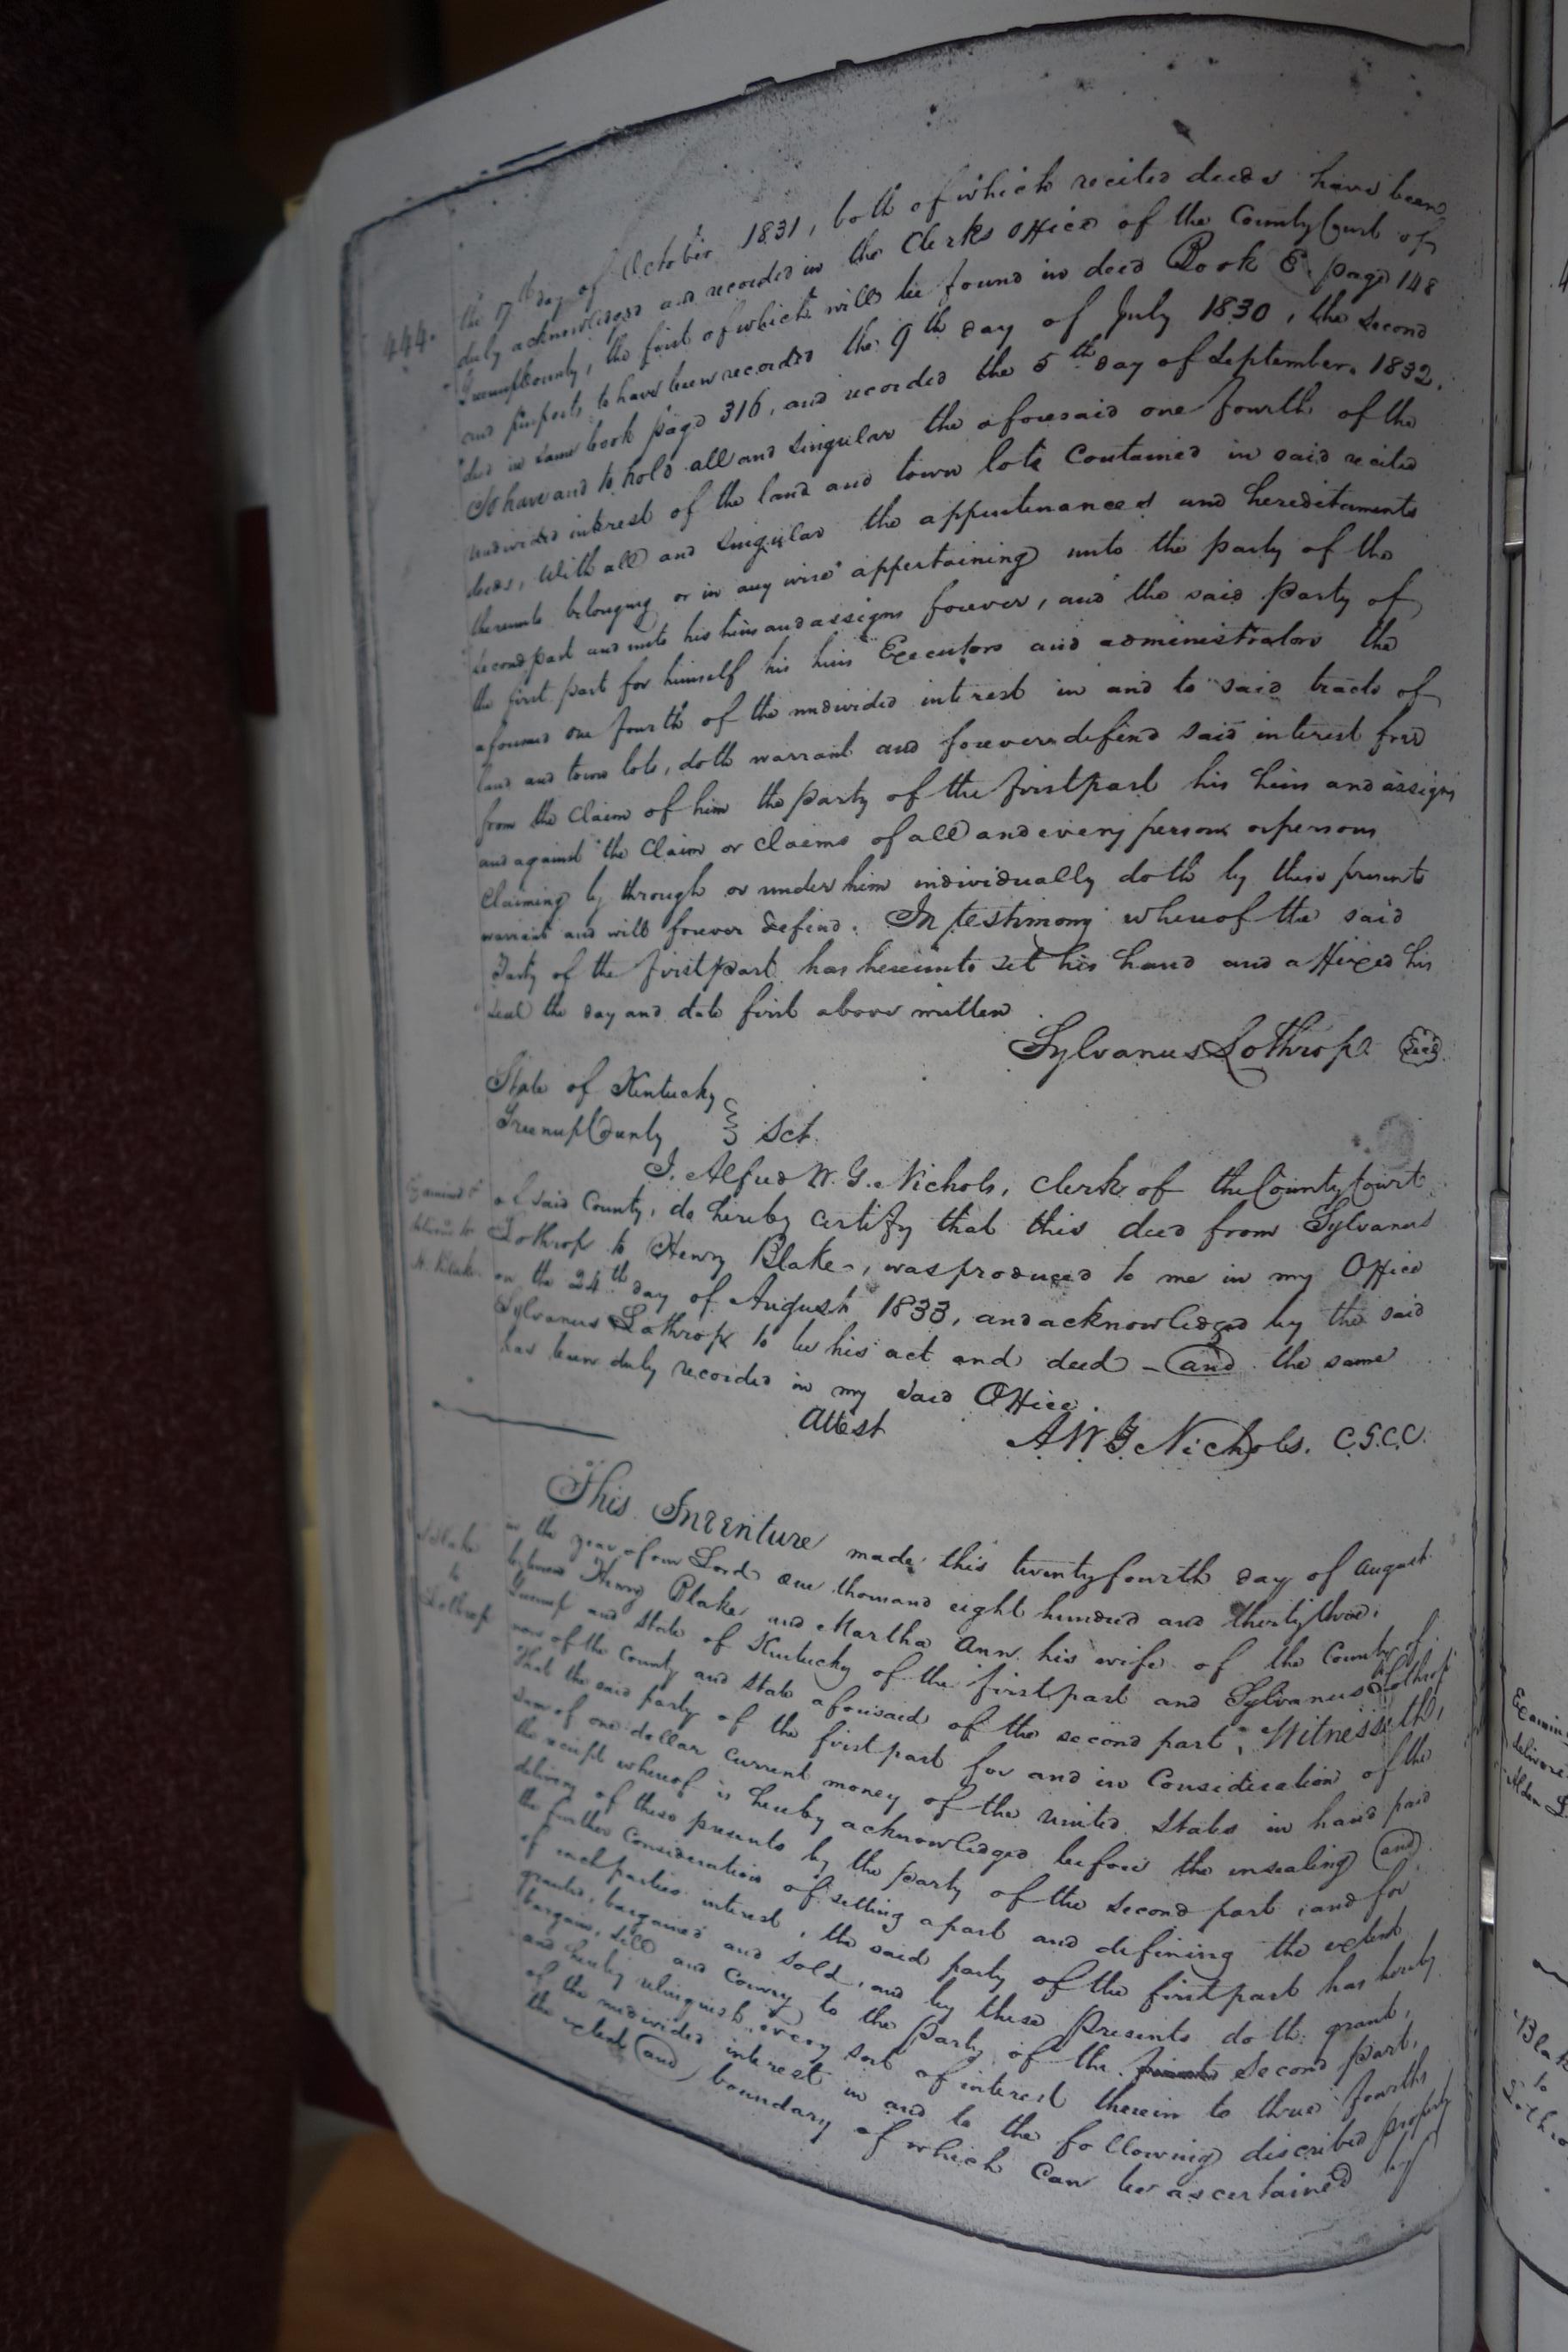 444.
the 17th day of October 1831, both of which recited deeds have been
duly acknowledged and recorded in the Clerks Office of the County Court of
Greenup County, the first of which will be found in deed Book E. page 148
and purports to have been recorded the 9th day of July 1830, the second
deed in same book page 316, and recorded the 5th day of September. 1832.
To have and to hold all and singular the aforesaid one fourth of the
undivided interest of the land and town lots contained in said recited
deeds, With all and singular the appurtenances and hereditaments
thereunto belonging or in any wise appertaining unto the party of the
second part and unto his heirs and assigns forever, and the said party of
the first part for himself his heirs Executors and administrators the
aforesaid one fourth of the undivided interest in and to said tracts of
land and town lots, doth warrant and forever defend said interest free
from the claim of him the party of the first part his heirs and assigns
and against the claim or claims of all and every person or persons
claiming by through or under him individually doth by these presents
warrant and will forever defend. In testimony whereof the said
Party of the first part has hereunto set his hand and affixed his
seal the day and date first above written
Sylvanus Lothrop Seal
State of Kentucky
Greenup County } Sct.
I. Alfred W. G. Nichols, clerk of the County Court
of said County, do hereby certify that this deed from Sylvanus
Lothrop to Henry Blake, was produced to me in my Office
on the 24th day of August 1833, and acknowledged by the said
Sylvanus Lothrop to be his act and deed – and the same
has been duly recorded in my said Office.
Examined &
delivered to
H. Blake
Attest A. W. G. Nichols. C.G.C.C.
This Indenture made this twenty fourth day of August
in the year of our Lord one thousand eight hundred and thirty three,
between Henry Blake and Martha Ann his wife of the County of
Greenup and State of Kentucky of the first part and Sylvanus Lothrop
now of the County and State aforesaid of the second part, Witnesseth,
That the said party of the first part for and in Consideration of the
sum of one dollar current money of the united States in hand paid
the receipt whereof is hereby acknowledged before the unsealing and
delivery of these presents by the party of the second part, and for
the further Consideration of setting apart and defining the extent
of each parties interest, the said party of the first part has hereby
granted, bargained and sold, and by these Presents doth grant,
bargain, sell and Convey to the party of the second part,
and hereby relinquish every sort of interest therein to three fourths
of the undivided interest in and to the following discribed property
the extent and boundary of which can be ascertained by
Blake
to
Lothrop